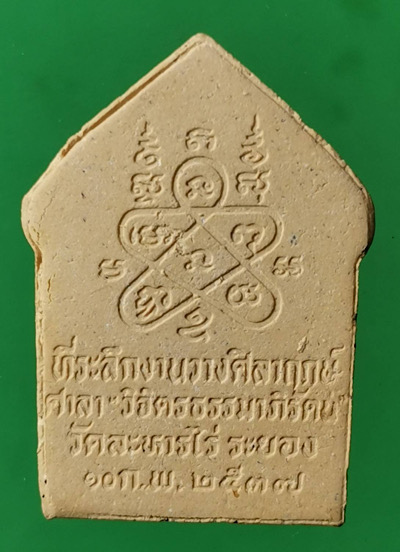 ที่ระลึกงานวางศิลาฤกษ์
ศาลา "วิจิตรธรรมาภิรัตน"
วัดละหารไร่ ระยอง
๑๐ก.พ. ๒๕๓๗